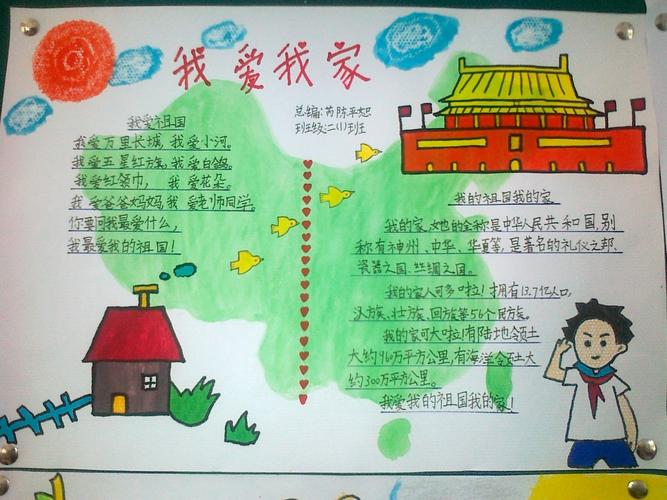 我爱我家
总编:芮陈平旭
班级:二(1)班
我爱祖国
我爱万里长城,我爱小河。
我爱五星红旗,我爱白鸽。
我爱红领巾,我爱花朵。
我爱爸爸妈妈,我爱老师同学。
你要问我最爱什么,
我最爱我的祖国!
我的祖国我的家
我的家,她的全称是中华人民共和国,别
称有神州、中华、华夏等,是著名的礼仪之邦、
瓷器之国、丝绸之国。
我的家人可多啦!拥有13.7亿人口,
汉族、壮族、回族等56个民族。
我的家可大啦!有陆地领土
大约960万平方公里,有海洋领土大
约300万平方公里。
我爱我的祖国我的家!